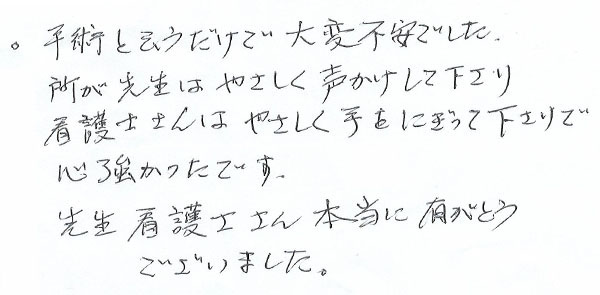 。手術と云うだけで大変不安でした.
所が先生はやさしく声かけして下さり
看護士さんはやさしく手をにぎって下さりで
心強かったです.
先生看護士さん本当に有がとう
ございました。